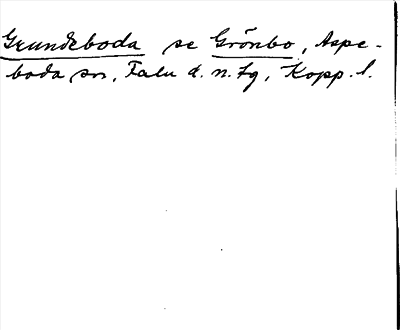 Grundeboda se Grönbo, Aspe-
boda sn, Falu d. n. tg, Kopp. l.